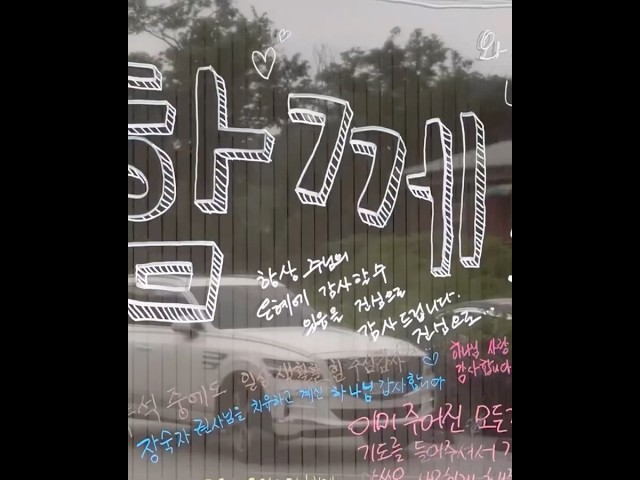 와
함께
항상 주님의
은혜에 감사할 수
있음을 진심으로
감사드립니다.
진심으로...
하나님 사랑
감사합니다
중에도 일상 생활을 할 수 있게 감사
장숙자 권사님을 치유하고 계신 하나님 감사합니다
이미 주어진 모든
기도를 들어주셔서